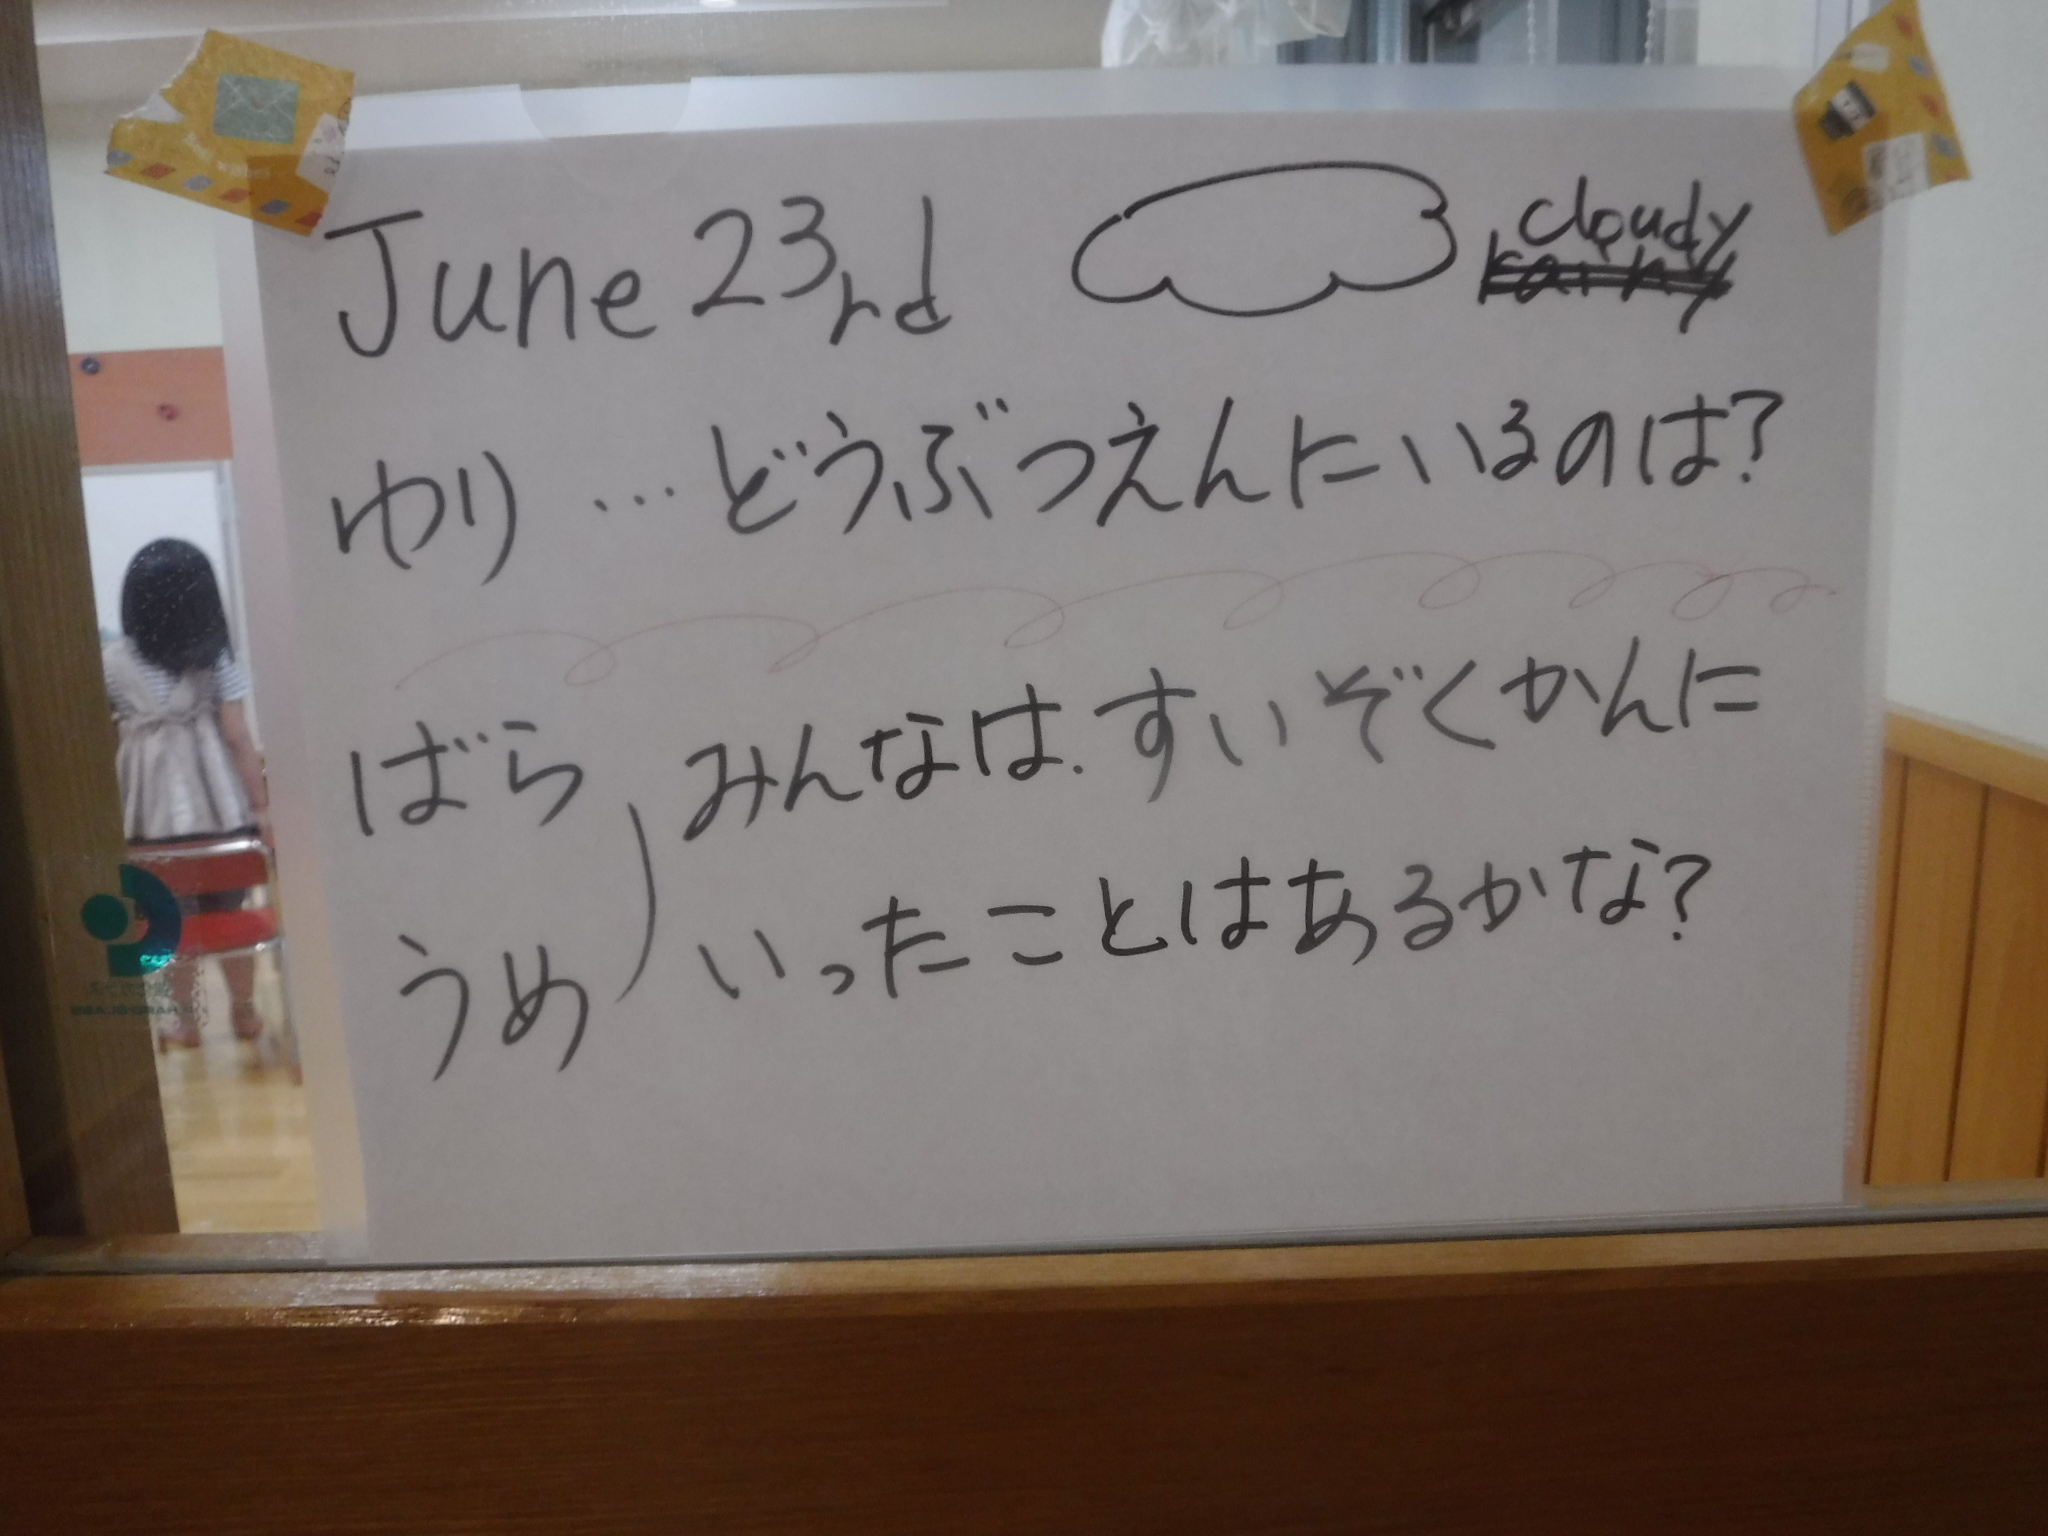 June 23rd cloudy
ゆり…どうぶつえんにいるのは?
ばら みんなは.すいぞくかんに
うめ いったことはあるかな?